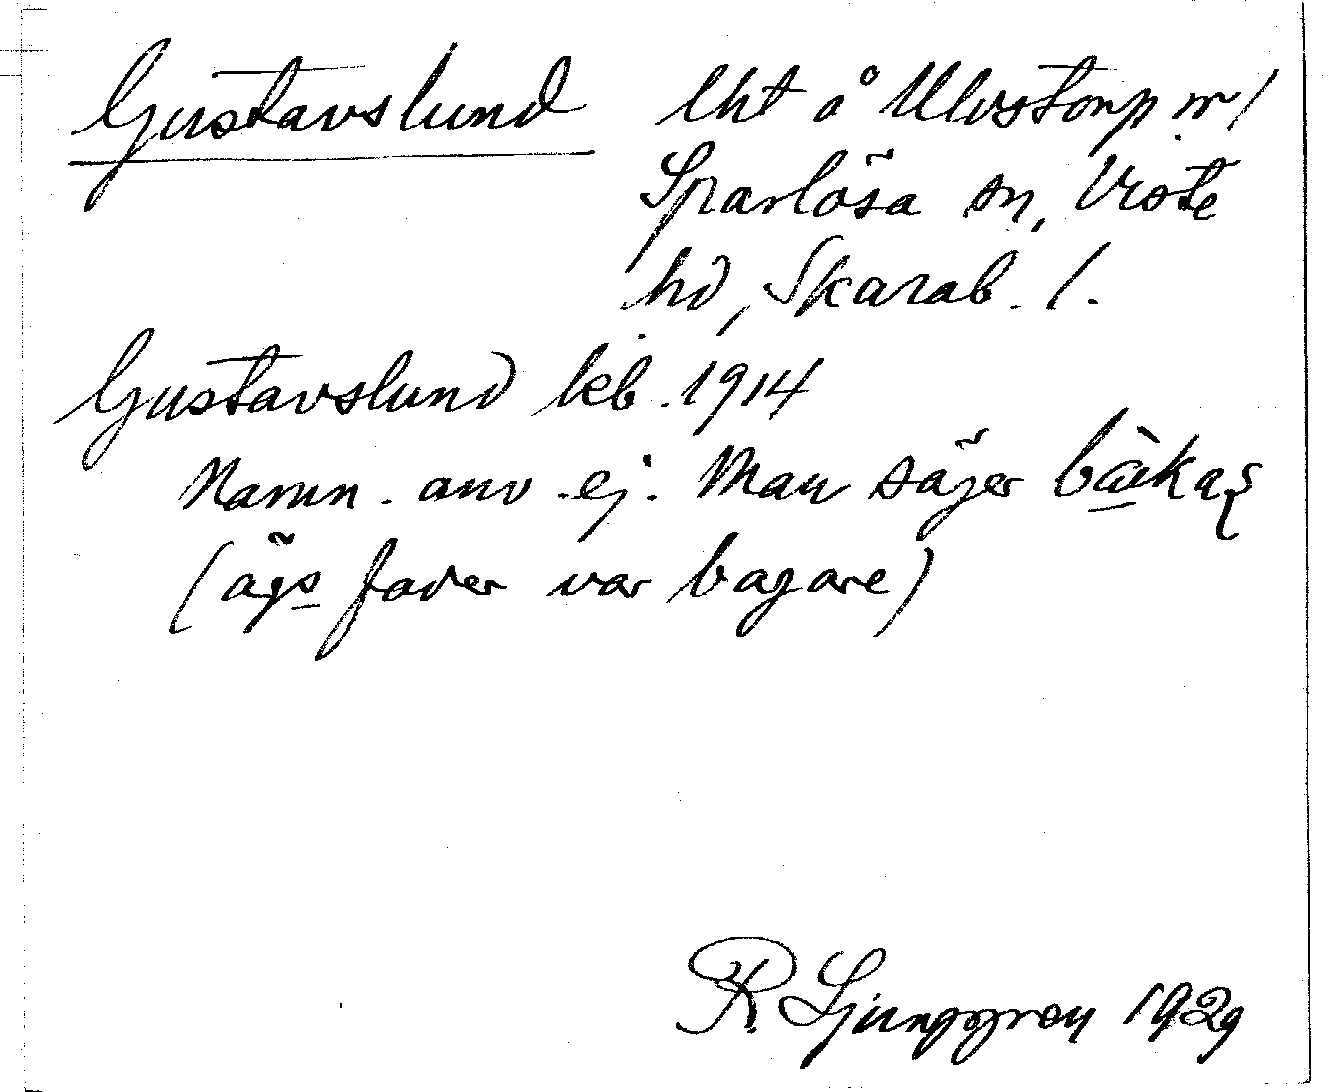 Gustavslund lht å Ulvstorp nr 1
Sparlösa sn, Viste
hd, Skarab. l.
Gustavslund kb. 1914
Namn. anv. ej. Man säjer bàkas
(ägs fader var bagare)
R Ljunggren 1929